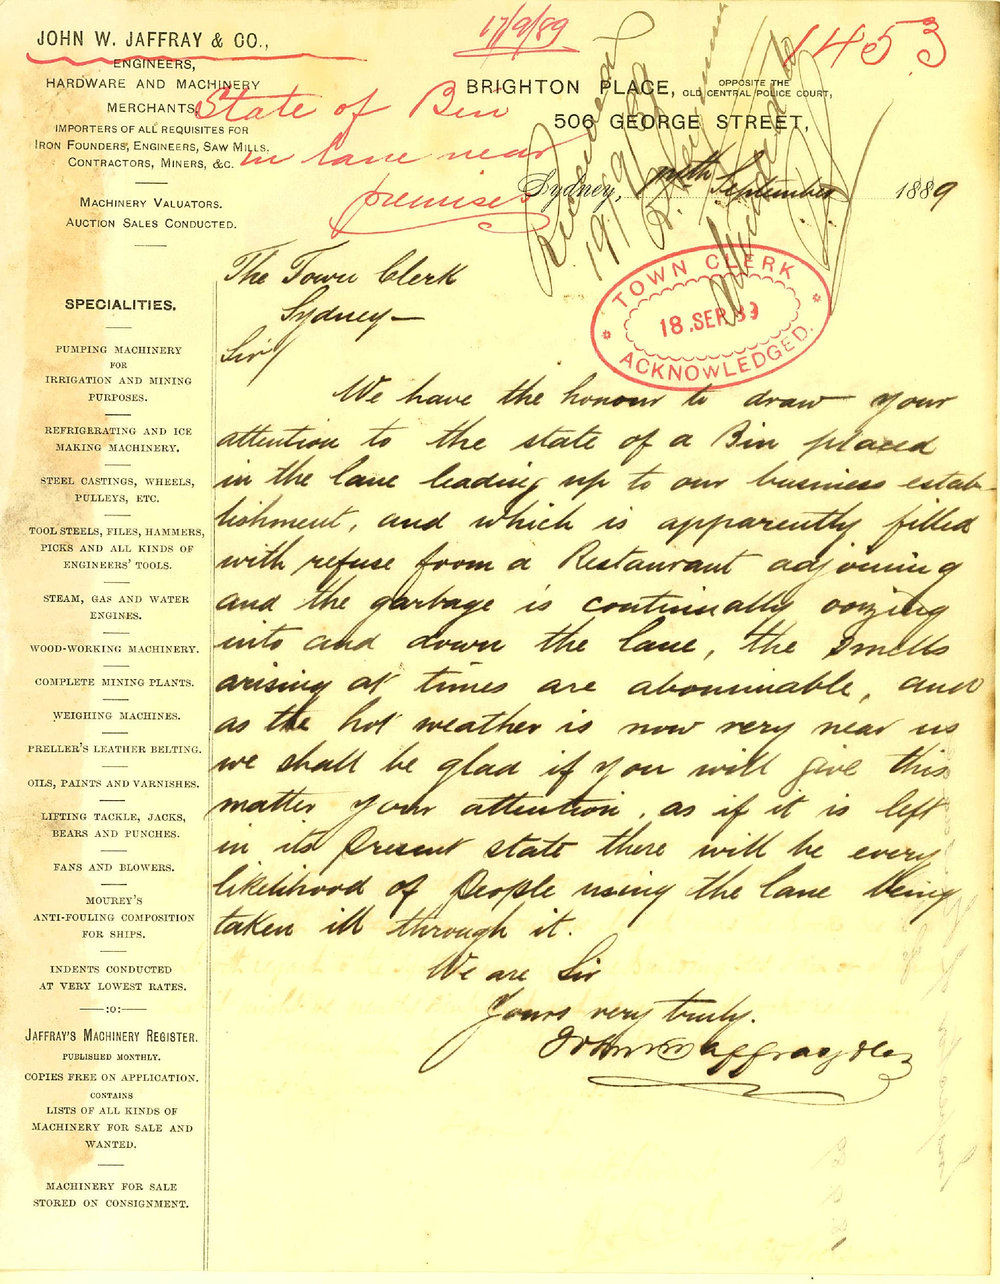 17/9/89
1453
JOHN W. JAFFRAY & CO.,
ENGINEERS,
HARDWARE AND MACHINERY
MERCHANTS,
IMPORTERS OF ALL REQUISITES FOR
IRON FOUNDERS, ENGINEERS, SAW MILLS,
CONTRACTORS, MINERS, &C.
MACHINERY VALUATORS.
AUCTION SALES CONDUCTED.
State of Bin
in lane near
premises
BRIGHTON PLACE, OPPOSITE THE
OLD CENTRAL POLICE COURT,
506 GEORGE STREET,
Sydney, September 1889
Received
19/9/89
TOWN CLERK
18. SEP. 89
ACKNOWLEDGED.
The Town Clerk
Sydney—
Sir/
We have the honour to draw your
attention to the state of a Bin placed
in the lane leading up to our business estab-
lishment, and which is apparently filled
with refuse from a Restaurant adjoining
and the garbage is continually oozing
into and down the lane, the smells
arising at times are abominable, and
as the hot weather is now very near us
we shall be glad if you will give this
matter your attention, as if it is left
in its present state there will be every
likelihood of People using the lane being
taken ill through it.
We are Sir
Yours very truly.
John W Jaffray & Co
SPECIALITIES.
PUMPING MACHINERY
FOR
IRRIGATION AND MINING
PURPOSES.
REFRIGERATING AND ICE
MAKING MACHINERY.
STEEL CASTINGS, WHEELS,
PULLEYS, ETC.
TOOL STEELS, FILES, HAMMERS,
PICKS AND ALL KINDS OF
ENGINEERS' TOOLS.
STEAM, GAS AND WATER
ENGINES.
WOOD-WORKING MACHINERY.
COMPLETE MINING PLANTS.
WEIGHING MACHINES.
PRELLER'S LEATHER BELTING.
OILS, PAINTS AND VARNISHES.
LIFTING TACKLE, JACKS,
BEARS AND PUNCHES.
FANS AND BLOWERS.
MOUREY'S
ANTI-FOULING COMPOSITION
FOR SHIPS.
INDENTS CONDUCTED
AT VERY LOWEST RATES.
:o:
JAFFRAY'S MACHINERY REGISTER.
PUBLISHED MONTHLY.
COPIES FREE ON APPLICATION.
CONTAINS
LISTS OF ALL KINDS OF
MACHINERY FOR SALE AND
WANTED.
MACHINERY FOR SALE
STORED ON CONSIGNMENT.